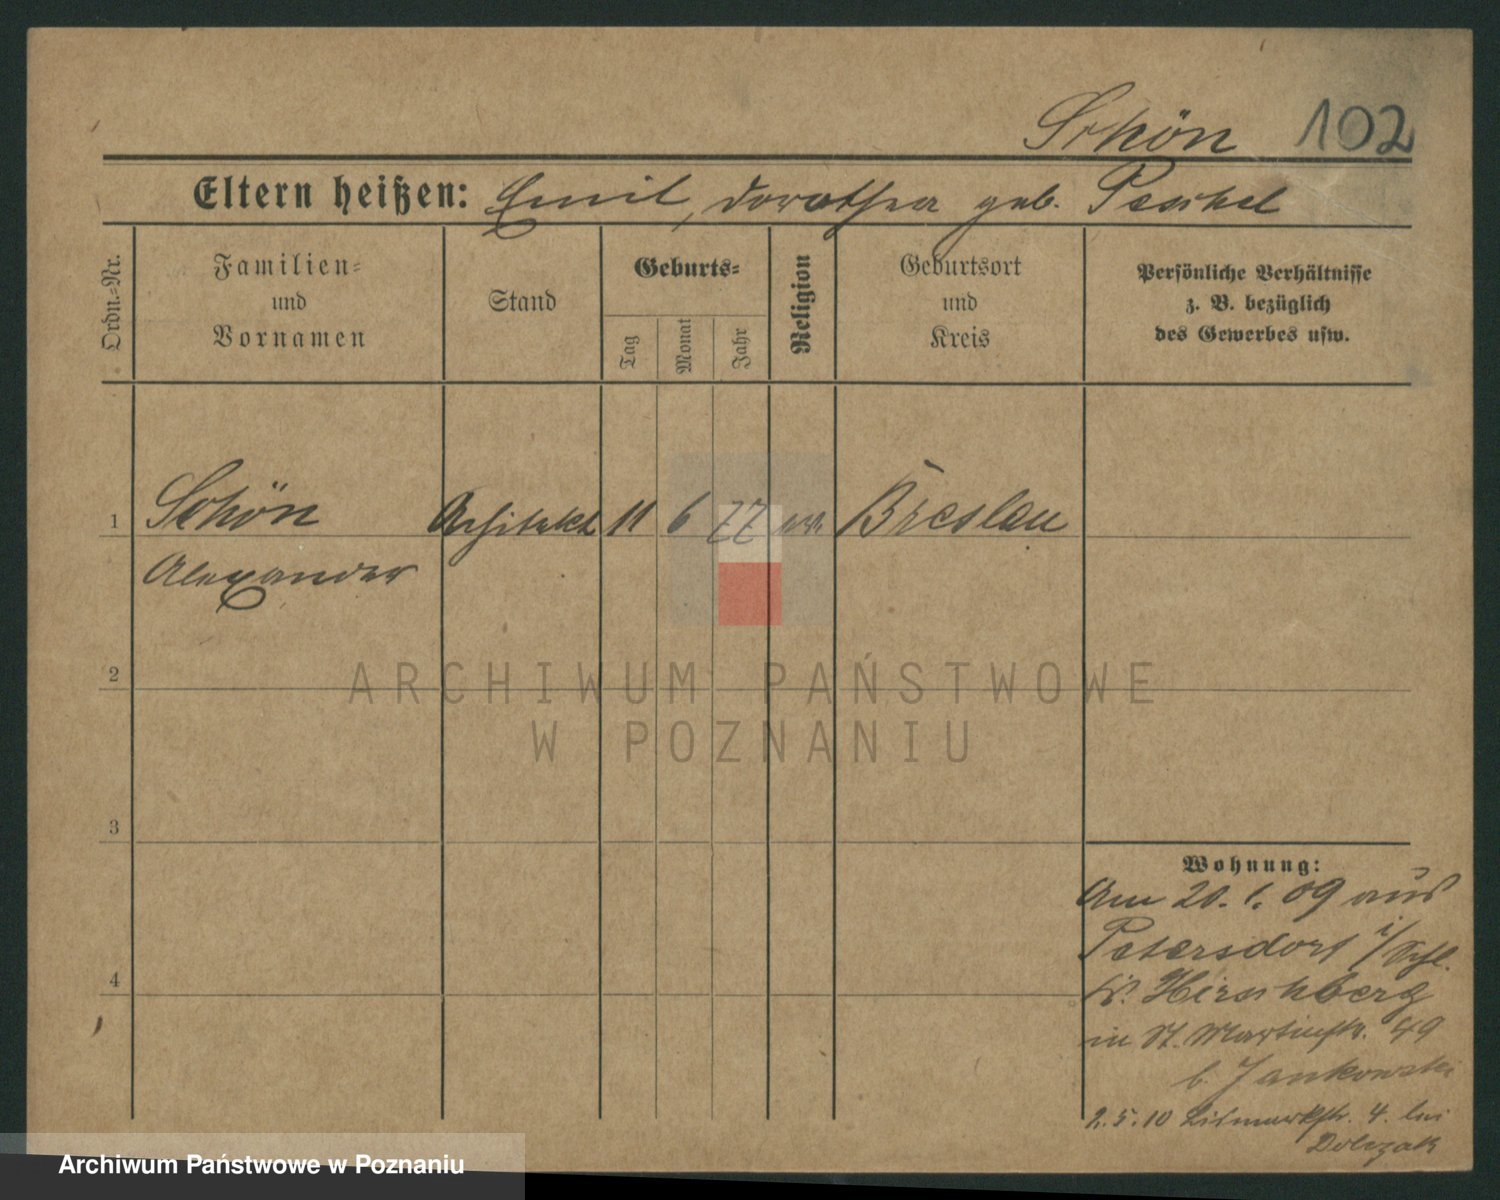 Schön 102
Eltern heißen: Emil, Dorothea geb. Peschel
Ordn.=Nr.
Familien=
und
Vornamen
Stand
Geburts=
Tag
Monat
Jahr
Religion
Geburtsort
und
Kreis
Persönliche Verhältnisse
z. B. bezüglich
des Gewerbes usw.
1 Schön Architekt 11 6 77 ev. Breslau
Alexander
2
3
4
Wohnung:
Am 20. 1. 09 aus
Petersdorf i/Schl.
Kr. Hirschberg
in St. Martinstr. 49
b. Jankowski
2.5.10 Bismarkstr. 4. bei
Dolczak
ARCHIWUM PAŃSTWOWE
W POZNANIU
Archiwum Państwowe w Poznaniu